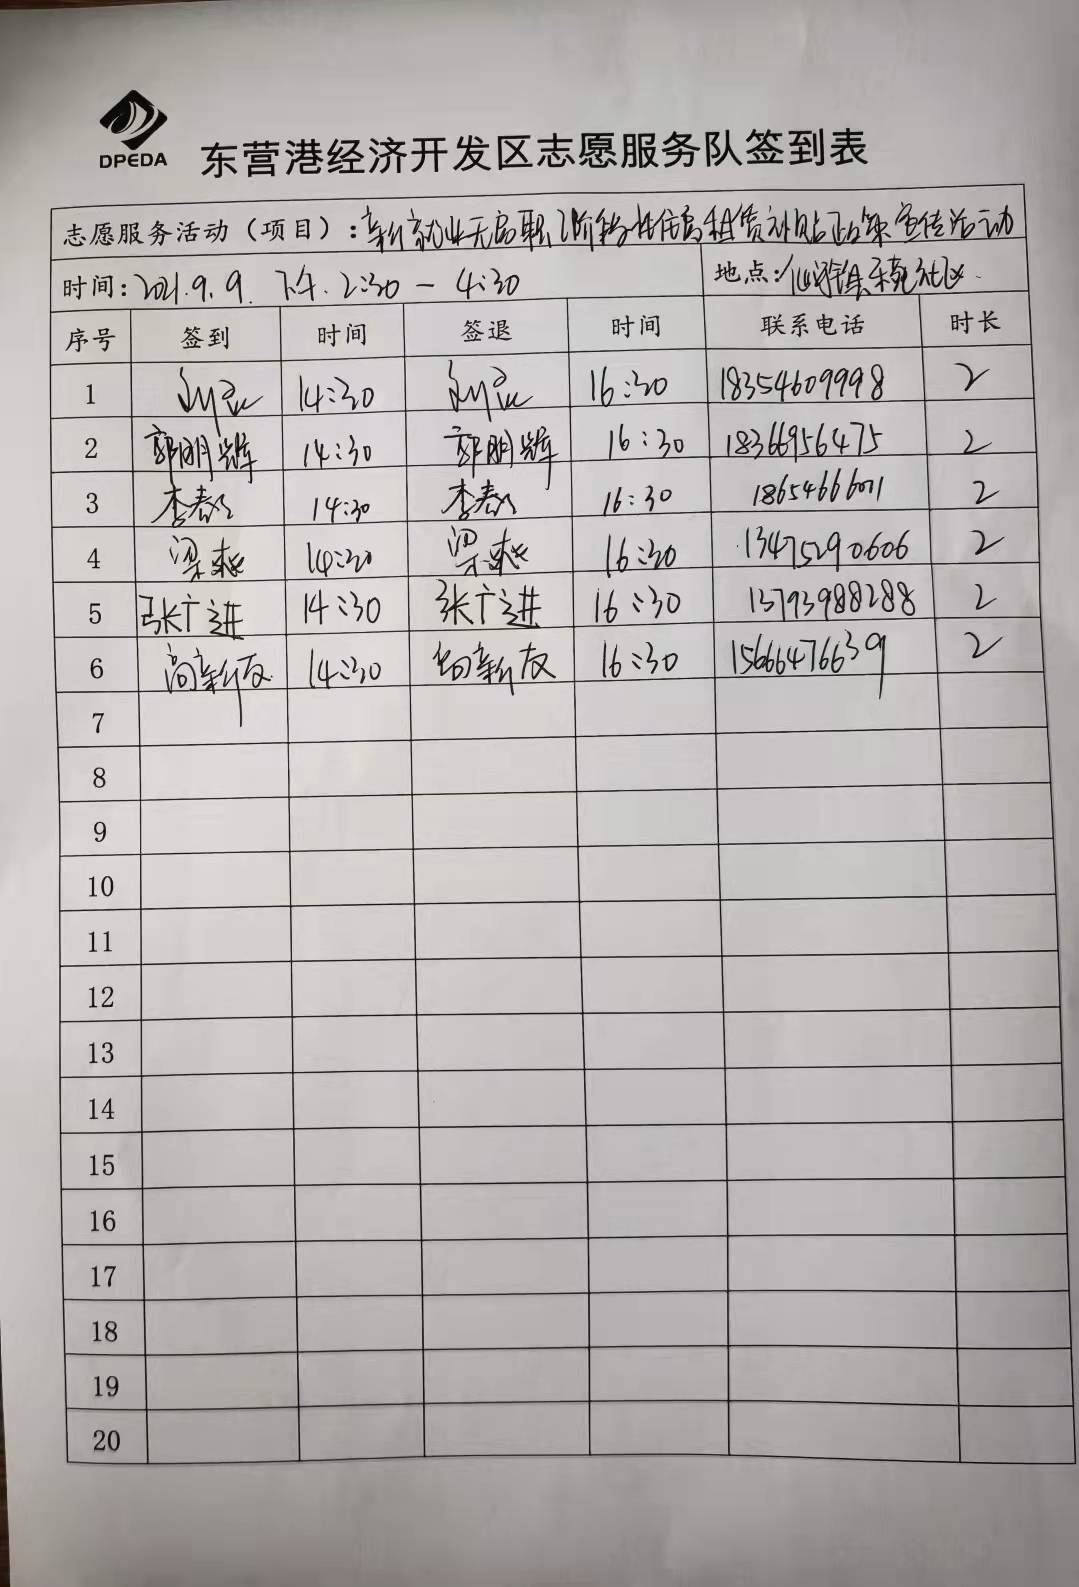 DPEDA
东营港经济开发区志愿服务队签到表
志愿服务活动（项目）：新就业无房职工阶段性住房租赁补贴政策宣传活动
时间：2021.9.9. 下午.2:30 - 4:30 地点：仙河镇社区.
序号 签到 时间 签退 时间 联系电话 时长
1 14:30 16:30 18354609998 2
2 郭明辉 14:30 郭明辉 16:30 18366956475 2
3 李春 14:30 李春 16:30 2
4 梁 14:30 梁 16:30 13475290606 2
5 张广进 14:30 张广进 16:30 13793988288 2
6 高新友 14:30 高新友 16:30 15666476639 2
7
8
9
10
11
12
13
14
15
16
17
18
19
20